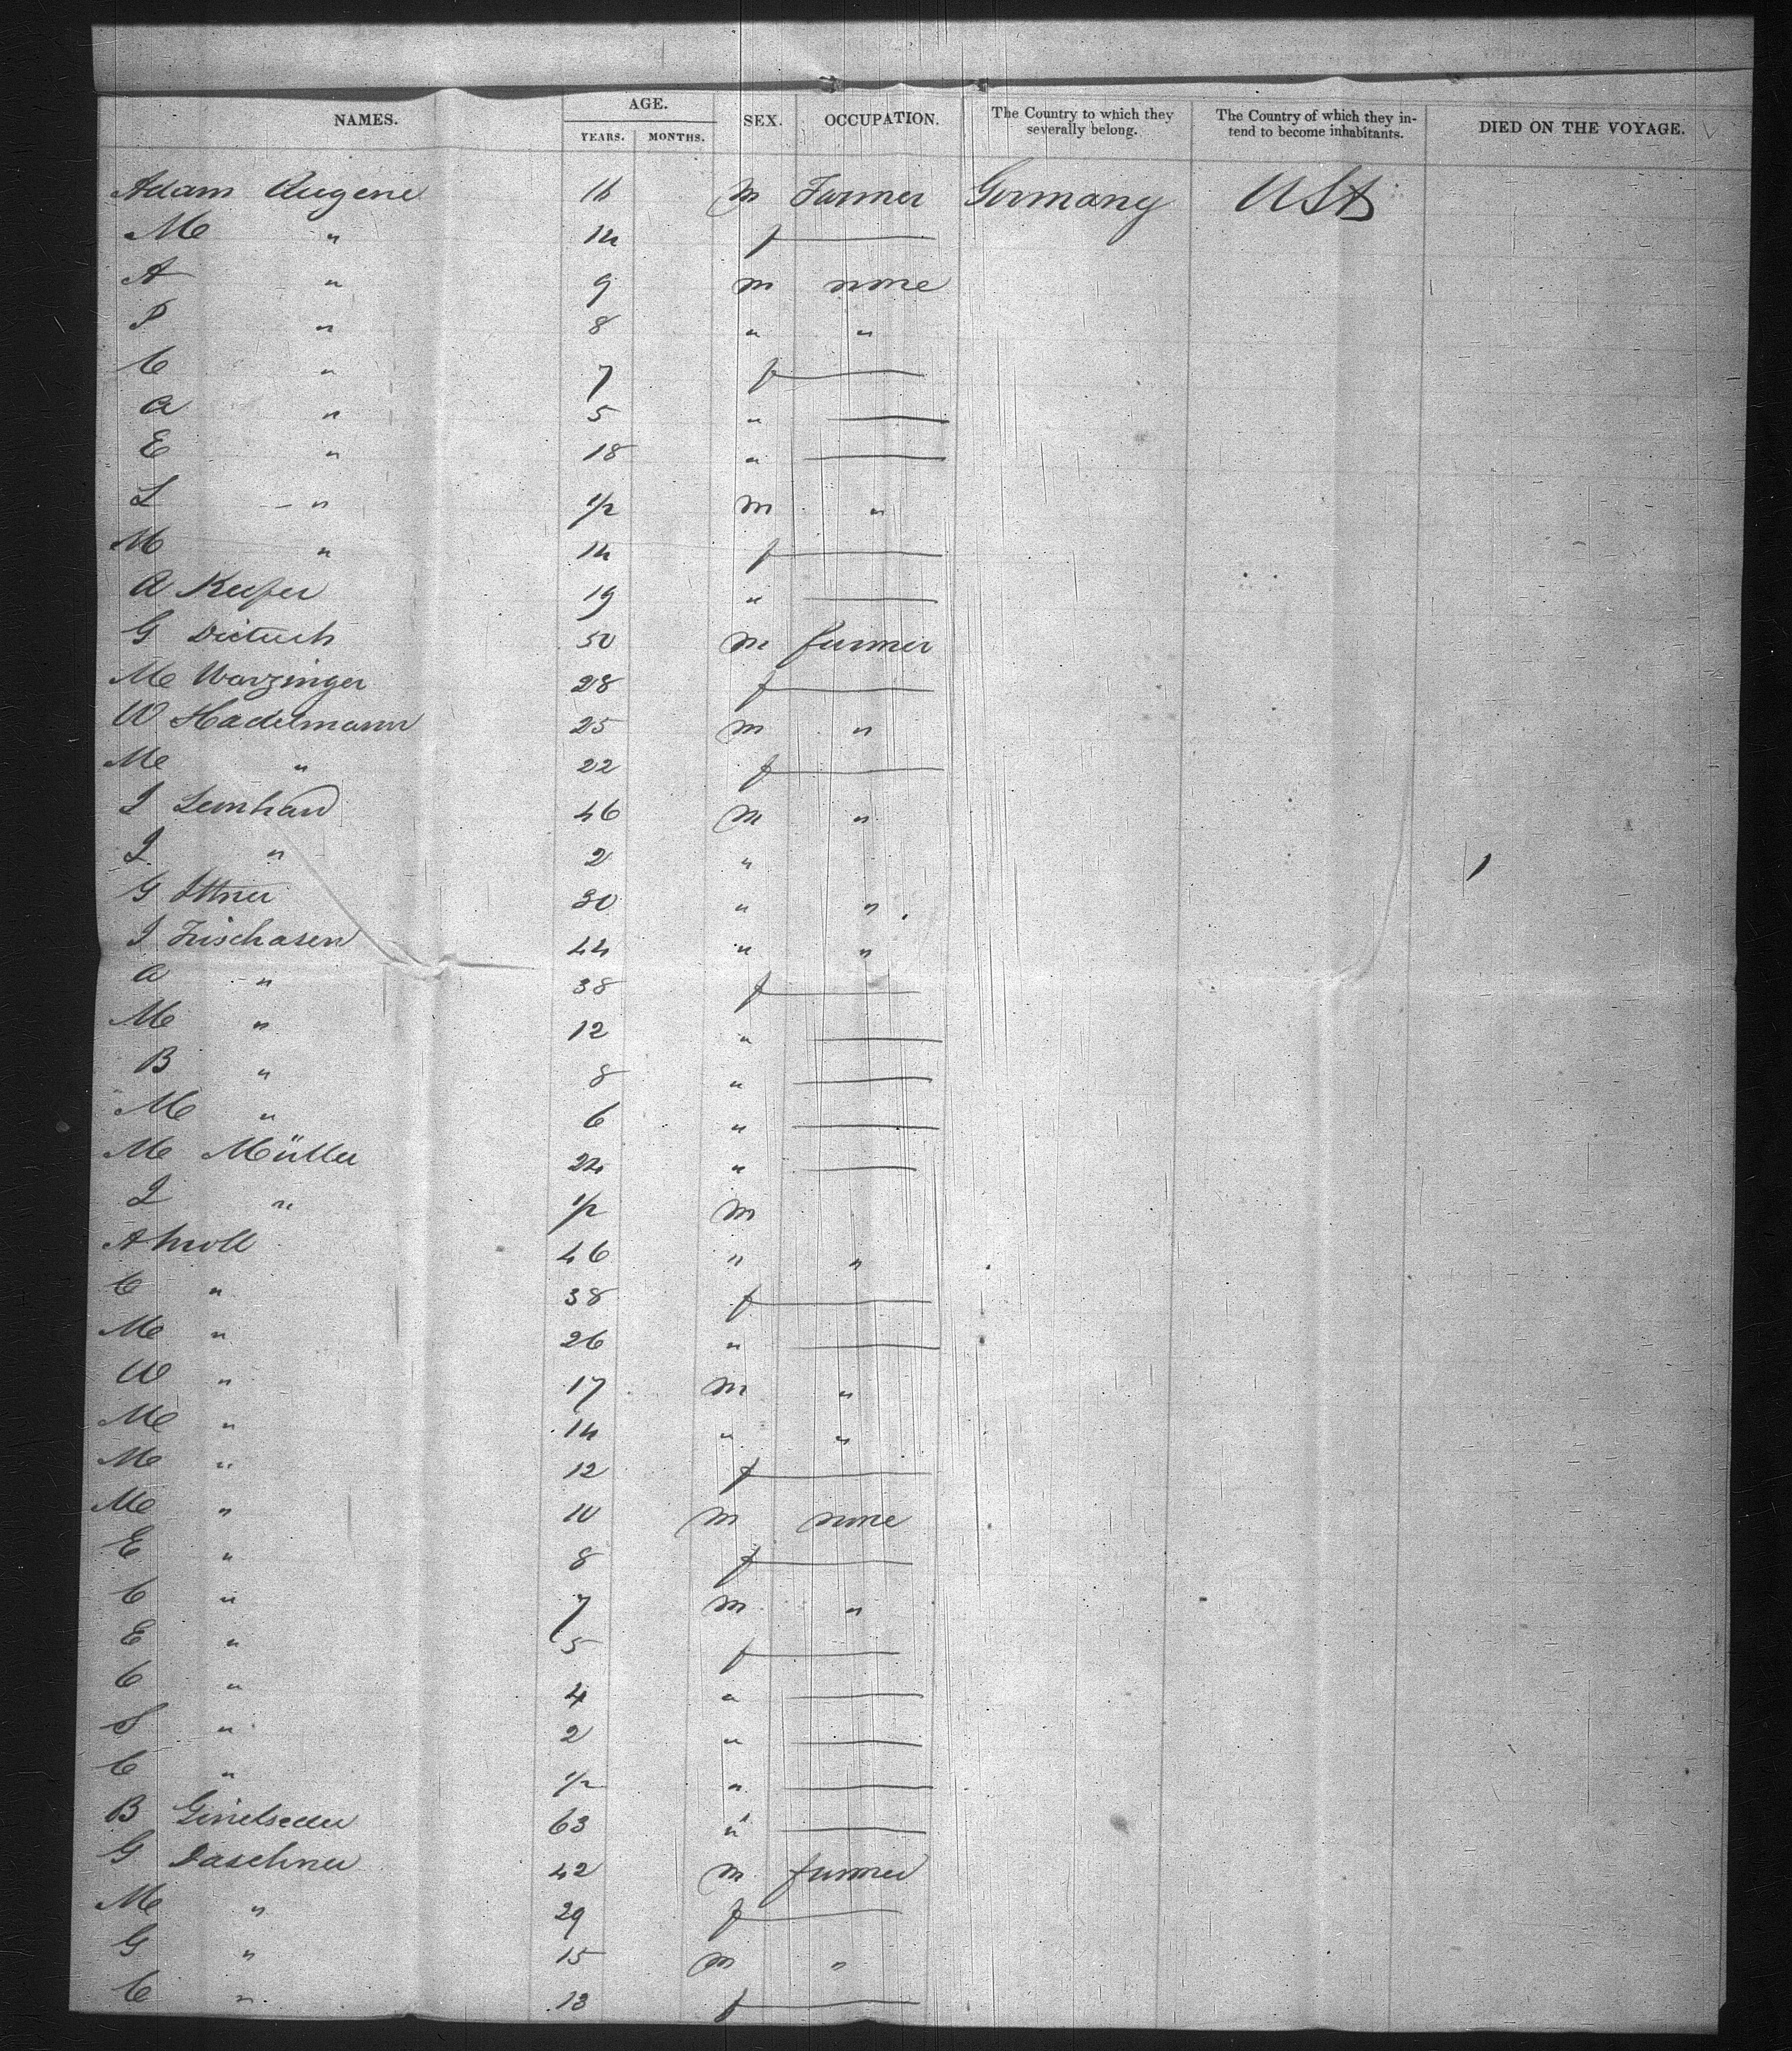 NAMES. AGE. YEARS. MONTHS. SEX. OCCUPATION. The Country to which they severally belong. The Country of which they intend to become inhabitants. DIED ON THE VOYAGE.
Adam Eugene 16 m Farmer Germany USA
M " 14 f
A " 9 m none
P " 8 " "
C " 7 f
A " 5 "
E " 18 "
L " 1/2 m "
M " 14 f
A Keefer 19 "
G 50 m farmer
M Warzinger 28 f
W Hadelmann 25 m "
M " 22 f
J 46 m "
J " 2 "
G Ittner 30 " "
J Frischasen 44 " "
A " 38 f
M " 12 "
B " 8 "
M " 6 "
M Müller 24 "
J " 1/2 m
A 46 " "
C " 38 f
M " 26 "
W " 17 m "
M " 14 " "
M " 12 f
M " 10 m none
E " 8 f
C " 7 m "
E " 5 f
C " 4 "
S " 2 "
C " 1/2 "
B 63 "
G Daschner 42 m farmer
M " 29 f
G " 15 m "
C " 13 f